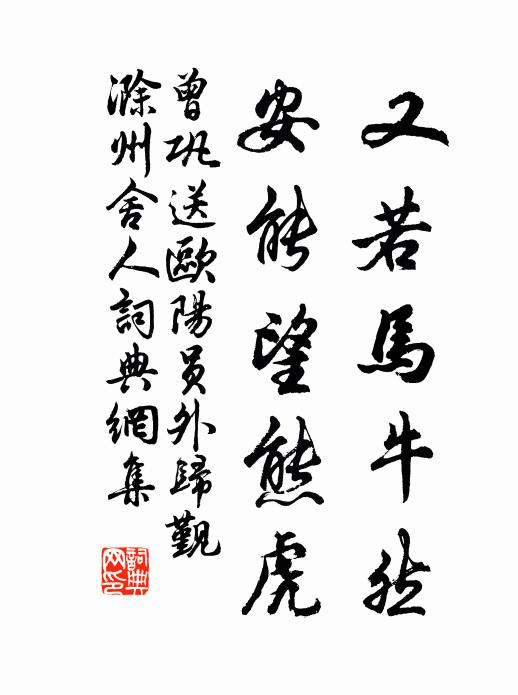 又若馬牛然
安能望熊虎
曾巩送歐陽員外歸觐
滁州舍人詞典網集
詞典網印